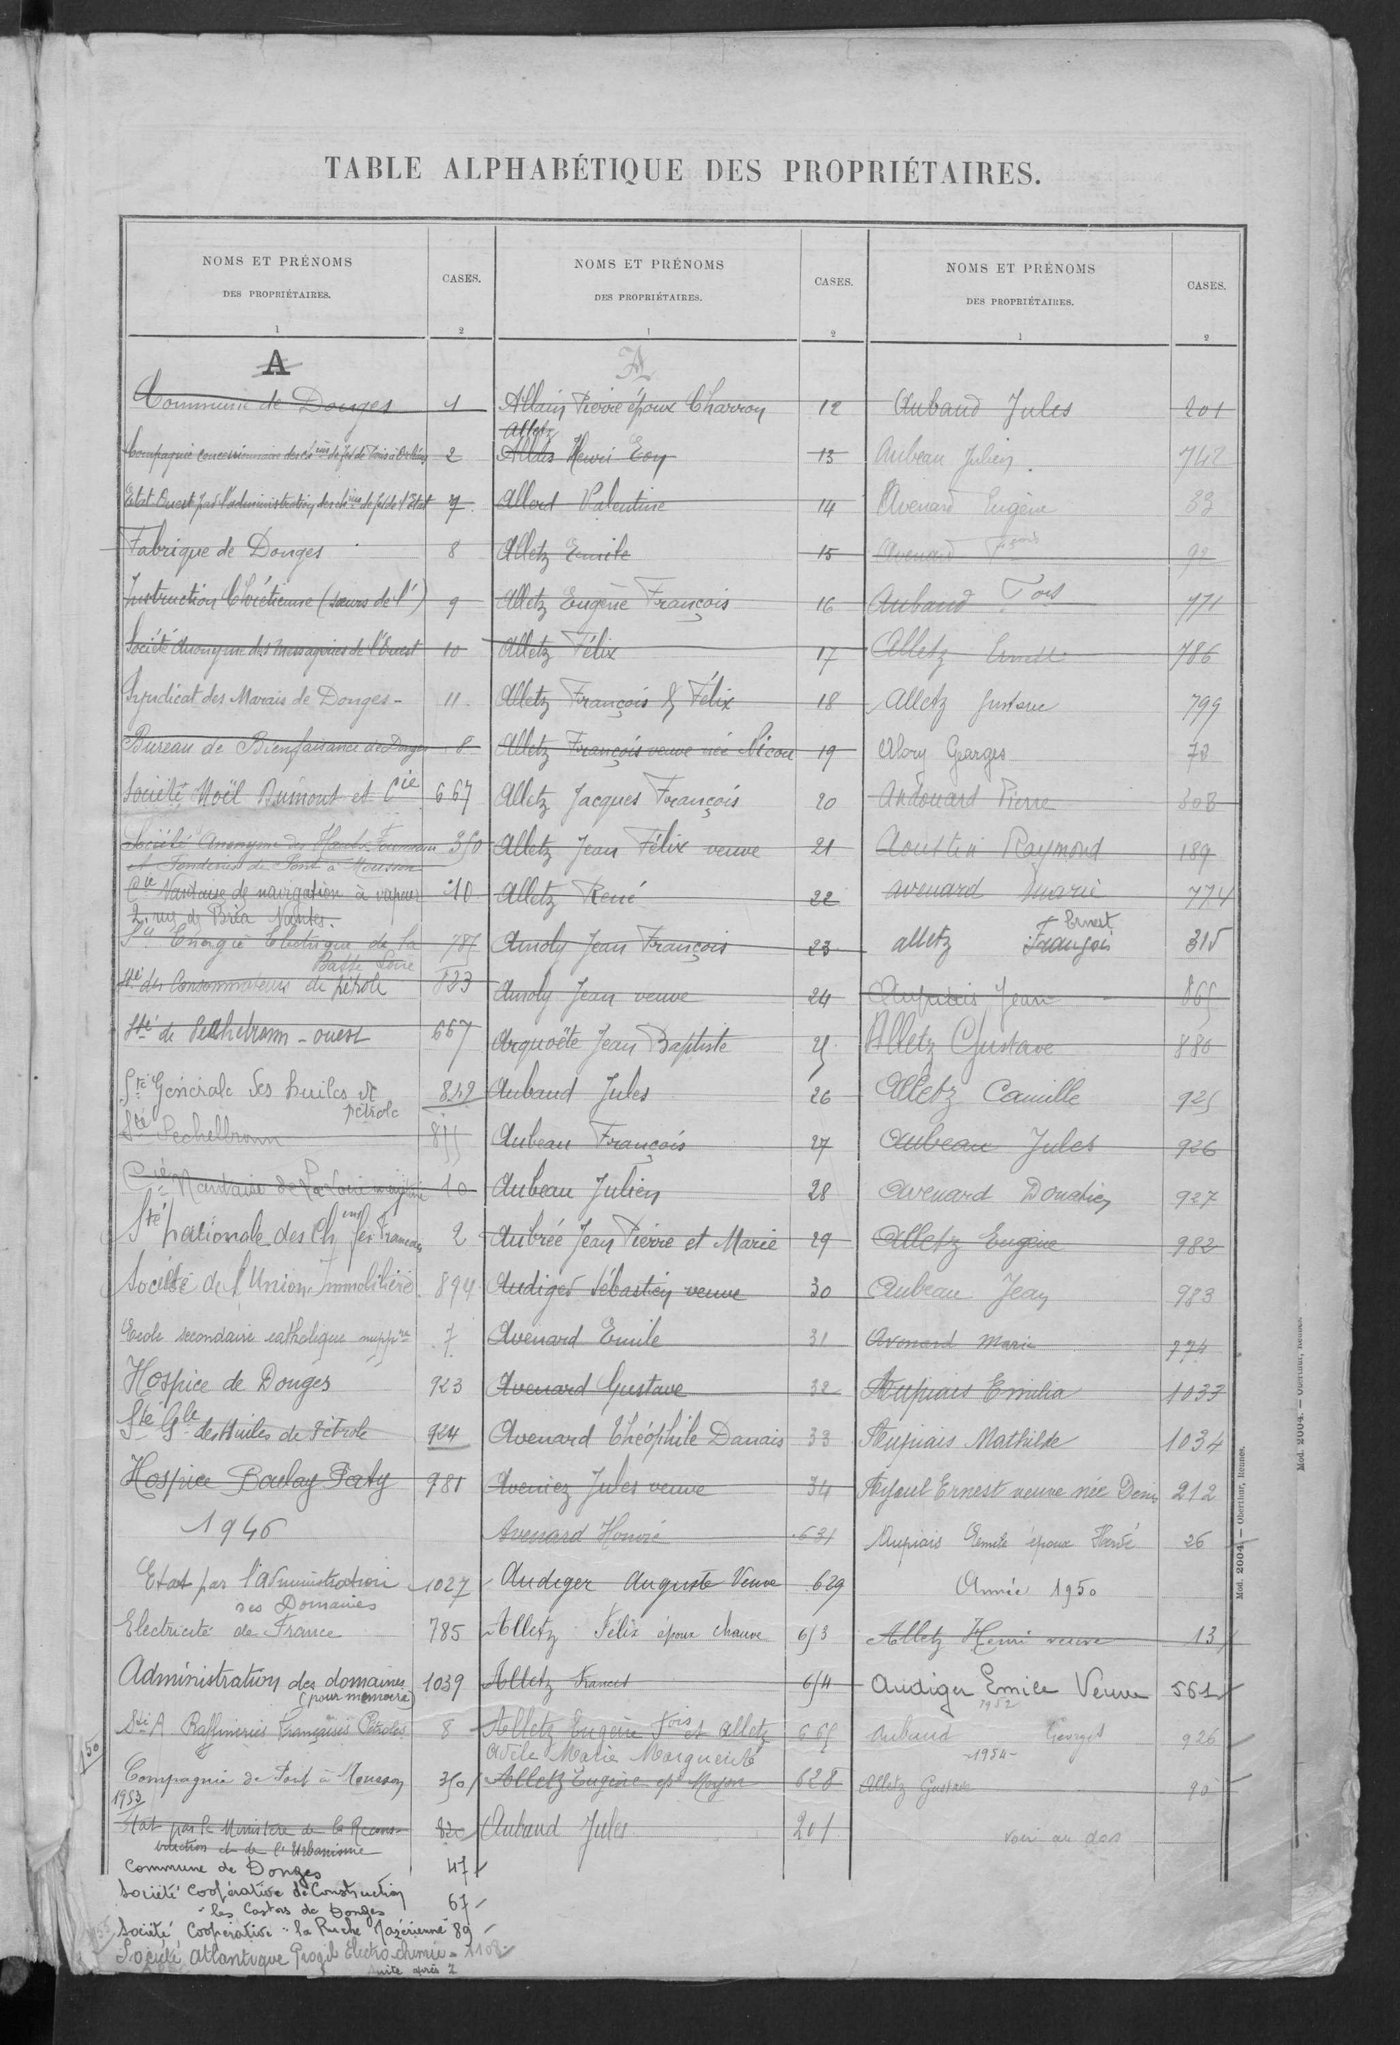 TABLE ALPHABÉTIQUE DES PROPRIÉTAIRES.
NOMS ET PRÉNOMS
DES PROPRIÉTAIRES.
CASES.
1
2
A
Commune de Donges 1
Compagnie concessionnaire des ch ins de fer de Paris à Orléans 2
Etat Ouest par l'administration des ch ins de fer de l'Etat 7
Fabrique de Donges 8
Instruction Chrétienne (sœurs de l') 9
Société Anonyme des Messageries de l'Ouest 10
Syndicat des Marais de Donges - 11
Bureau de Bienfaisance de Donges 8
Société Noël Dumont et Cie 667
Société Anonyme des Hauts Fourneaux 350
et Fonderies de Pont à Mousson
Cie Nantaise de navigation à vapeur 10
2, rue de Bréa Nantes.
Sté Energie Electrique de la 785
Basse Loire
Sté des Consommateurs de pétrole 823
Sté de Pechelbronn - ouest 667
Sté Générale des huiles de 842
pétrole
Sté Pechelbronn 855
Cie Nantaise de la Loire 10
Sté nationale des Ch ins fer Français 2
Société de l'Union Immobilière 894
Ecole secondaire catholique 7
Hospice de Donges 923
Sté Gle des Huiles de Pétrole 924
Hospice Boulay Paty 981
1946
Etat par l'administration 1027
des Domaines
Electricité de France 785
Administration des domaines 1039
(pour mémoire)
Sté A Raffineries Françaises Pétroles 8
50
Compagnie de Pont à Mousson 350
1953
Etat par le Ministère de la Recons-
truction et de l'Urbanisme
Commune de Donges 47
Société Coopérative de Construction
"les Castors de Donges 67
Société Coopérative "la Ruche Nazérienne" 89
Société Atlantique Progil Electrochimie 1108
suite après Z
NOMS ET PRÉNOMS
DES PROPRIÉTAIRES.
CASES.
1
2
A
Allain Pierre époux Charron 12
Alletz
Alletz Henri Eon 13
Allerd Valentine 14
Alletz Emile 15
Alletz Eugène François 16
Alletz Félix 17
Alletz François & Félix 18
Alletz François veuve née Nicou 19
Alletz Jacques François 20
Alletz Jean Félix veuve 21
Alletz René 22
Amoly Jean François 23
Amoly Jean veuve 24
Arquoëte Jean Baptiste 25
Aubaud Jules 26
Aubeau François 27
Aubeau Julien 28
Aubrée Jean Pierre et Marie 29
Audiger Sébastien veuve 30
Avenard Emile 31
Avenard Gustave 32
Avenard Théophile Danais 33
Aveniez Jules veuve 34
Avenard Honoré 631
Audiger Auguste Veuve 629
Alletz Félix époux Chauve 653
Alletz Francis 654
Alletz Eugène Fois et Alletz 665
Adèle Marie Marguerite
Alletz Eugène ép Moyon 628
Aubaud Jules 201
NOMS ET PRÉNOMS
DES PROPRIÉTAIRES.
CASES.
1
2
Aubaud Jules 201
Aubeau Julien 742
Avenard Eugène 33
Avenard Fçois 92
Aubaud Fois 771
Alletz Ernest 786
Alletz Gustave 799
Alory Georges 73
Andouard Pierre 308
Aoustin Raymond 189
Avenard Marie 774
+ Ernest
Alletz François 315
Aupiais Jean 865
Alletz Gustave 880
Alletz Camille 925
Aubeau Jules 926
Avenard Donatien 927
Alletz Eugène 982
Aubeau Jean 983
Avenard Marie 774
Aupiais Emilia 1033
Aupiais Mathilde 1034
Ernest veuve née Denis 212
Aupiais époux Hervé 26
Année 1950
Alletz Henri veuve 13
Audiger Emile Veuve 561
1952
Aubaud Georges 926
- 1954 -
Alletz Gustave 90
voir au dos
Mod. 2004. — Oberthur, Rennes.
Mod. 2004. — Oberthur, Rennes.